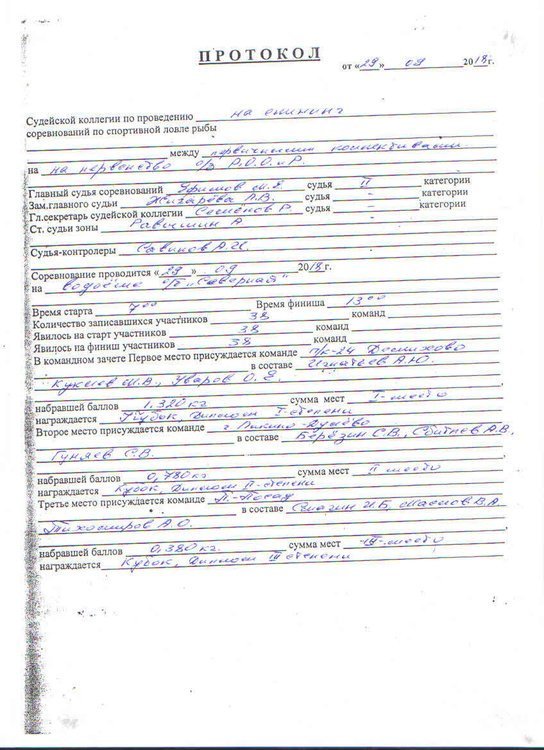 ПРОТОКОЛ
от «29» 09 2018г.
Судейской коллегии по проведению на спининг
соревнований по спортивной ловле рыбы
между первичными коллективами
на на первенство о/в Р.О.О.иР.
Главный судья соревнований Ефимов М.Е. судья II категории
Зам.главного судьи Жихарева Л.В. судья – категории
Гл.секретарь судейской коллегии Семёнов Р. судья – категории
Ст. судьи зоны А
Судья-контролеры Савинов А.И.
Соревнование проводится «29» 09 2018г.
на водоёме "Северная"
Время старта 7⁰⁰ Время финиша 13⁰⁰
Количество записавшихся участников 38 команд
Явилось на старт участников 38 команд
Явилось на финиш участников 38 команд
В командном зачете Первое место присуждается команде п/к-24 Демихово
в составе Игнатьев А.Ю.
М.В., Уваров О.Е.
набравшей баллов 1,320 кг сумма мест I-место
награждается Кубок, Диплом I-степени
Второе место присуждается команде г. Ликино-Дулёво
в составе Берёзин С.В., Сбитнев А.В.,
Гуняев С.В.
набравшей баллов 0,780 кг сумма мест II место
награждается Кубок, Диплом II-степени
Третье место присуждается команде П.-Посад
в составе Смагин И.Б. Маслов В.А.
Тихомиров А.О.
набравшей баллов 0,380 кг. сумма мест III-место
награждается Кубок, Диплом III степени